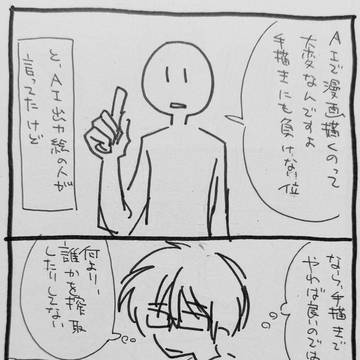 AIで漫画描くのって
大変なんですよ
手描きにも負けない位
と、AI出力絵の人が
言ってたけど
なら、手描きで
やれば良いのでは
何より、
誰かを搾取
したりしてない